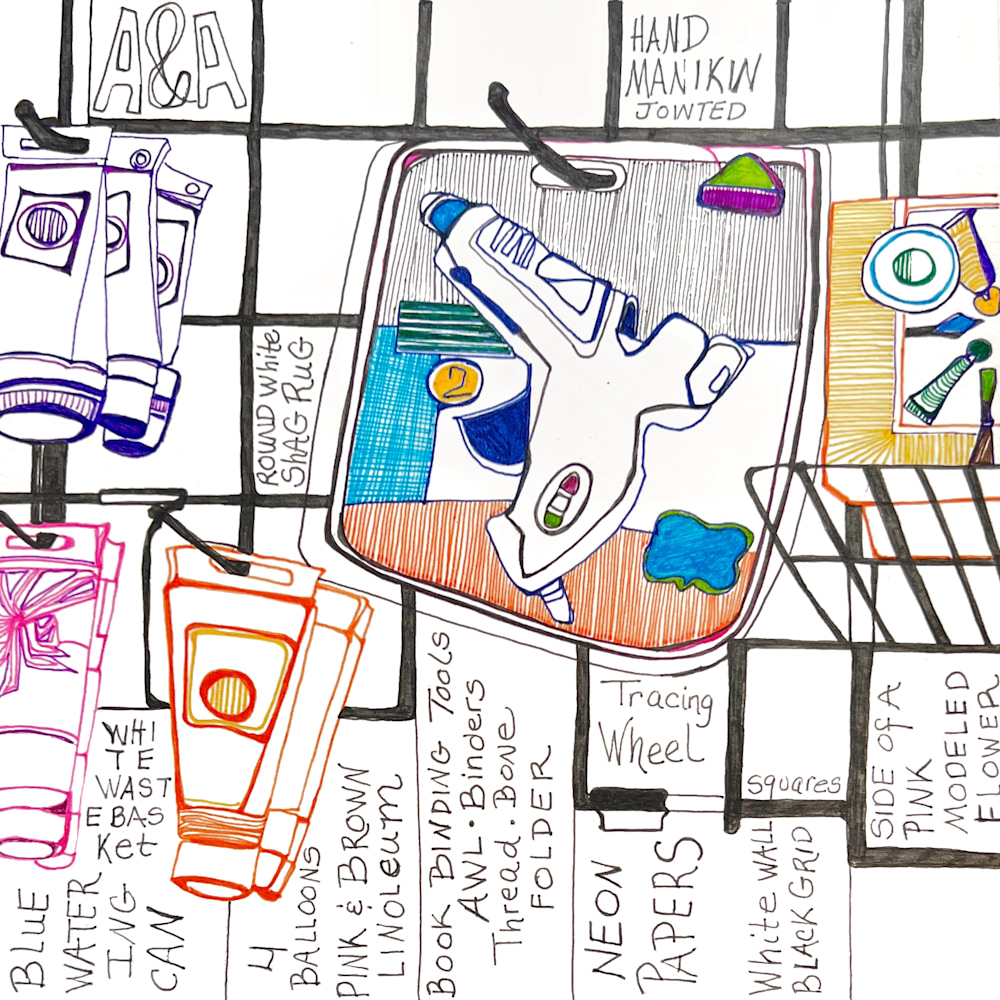 A&A
HAND
MANIKIN
JOWTED
ROUND White
SHAG RUG
2
WHI
TE
WAST
E BAS
Ket
BLUE
WATER
ING
CAN
4
BALLOONS
PINK & BROWN
LINOLEUM
BOOK BINDING TOOLS
AWL · Binders
Thread . BONE
FOLDER
Tracing
WHEEL
NEON
PAPERS
squares
White WALL
BLACK GRID
SIDE OF A
PINK
MODELED
FLOWER